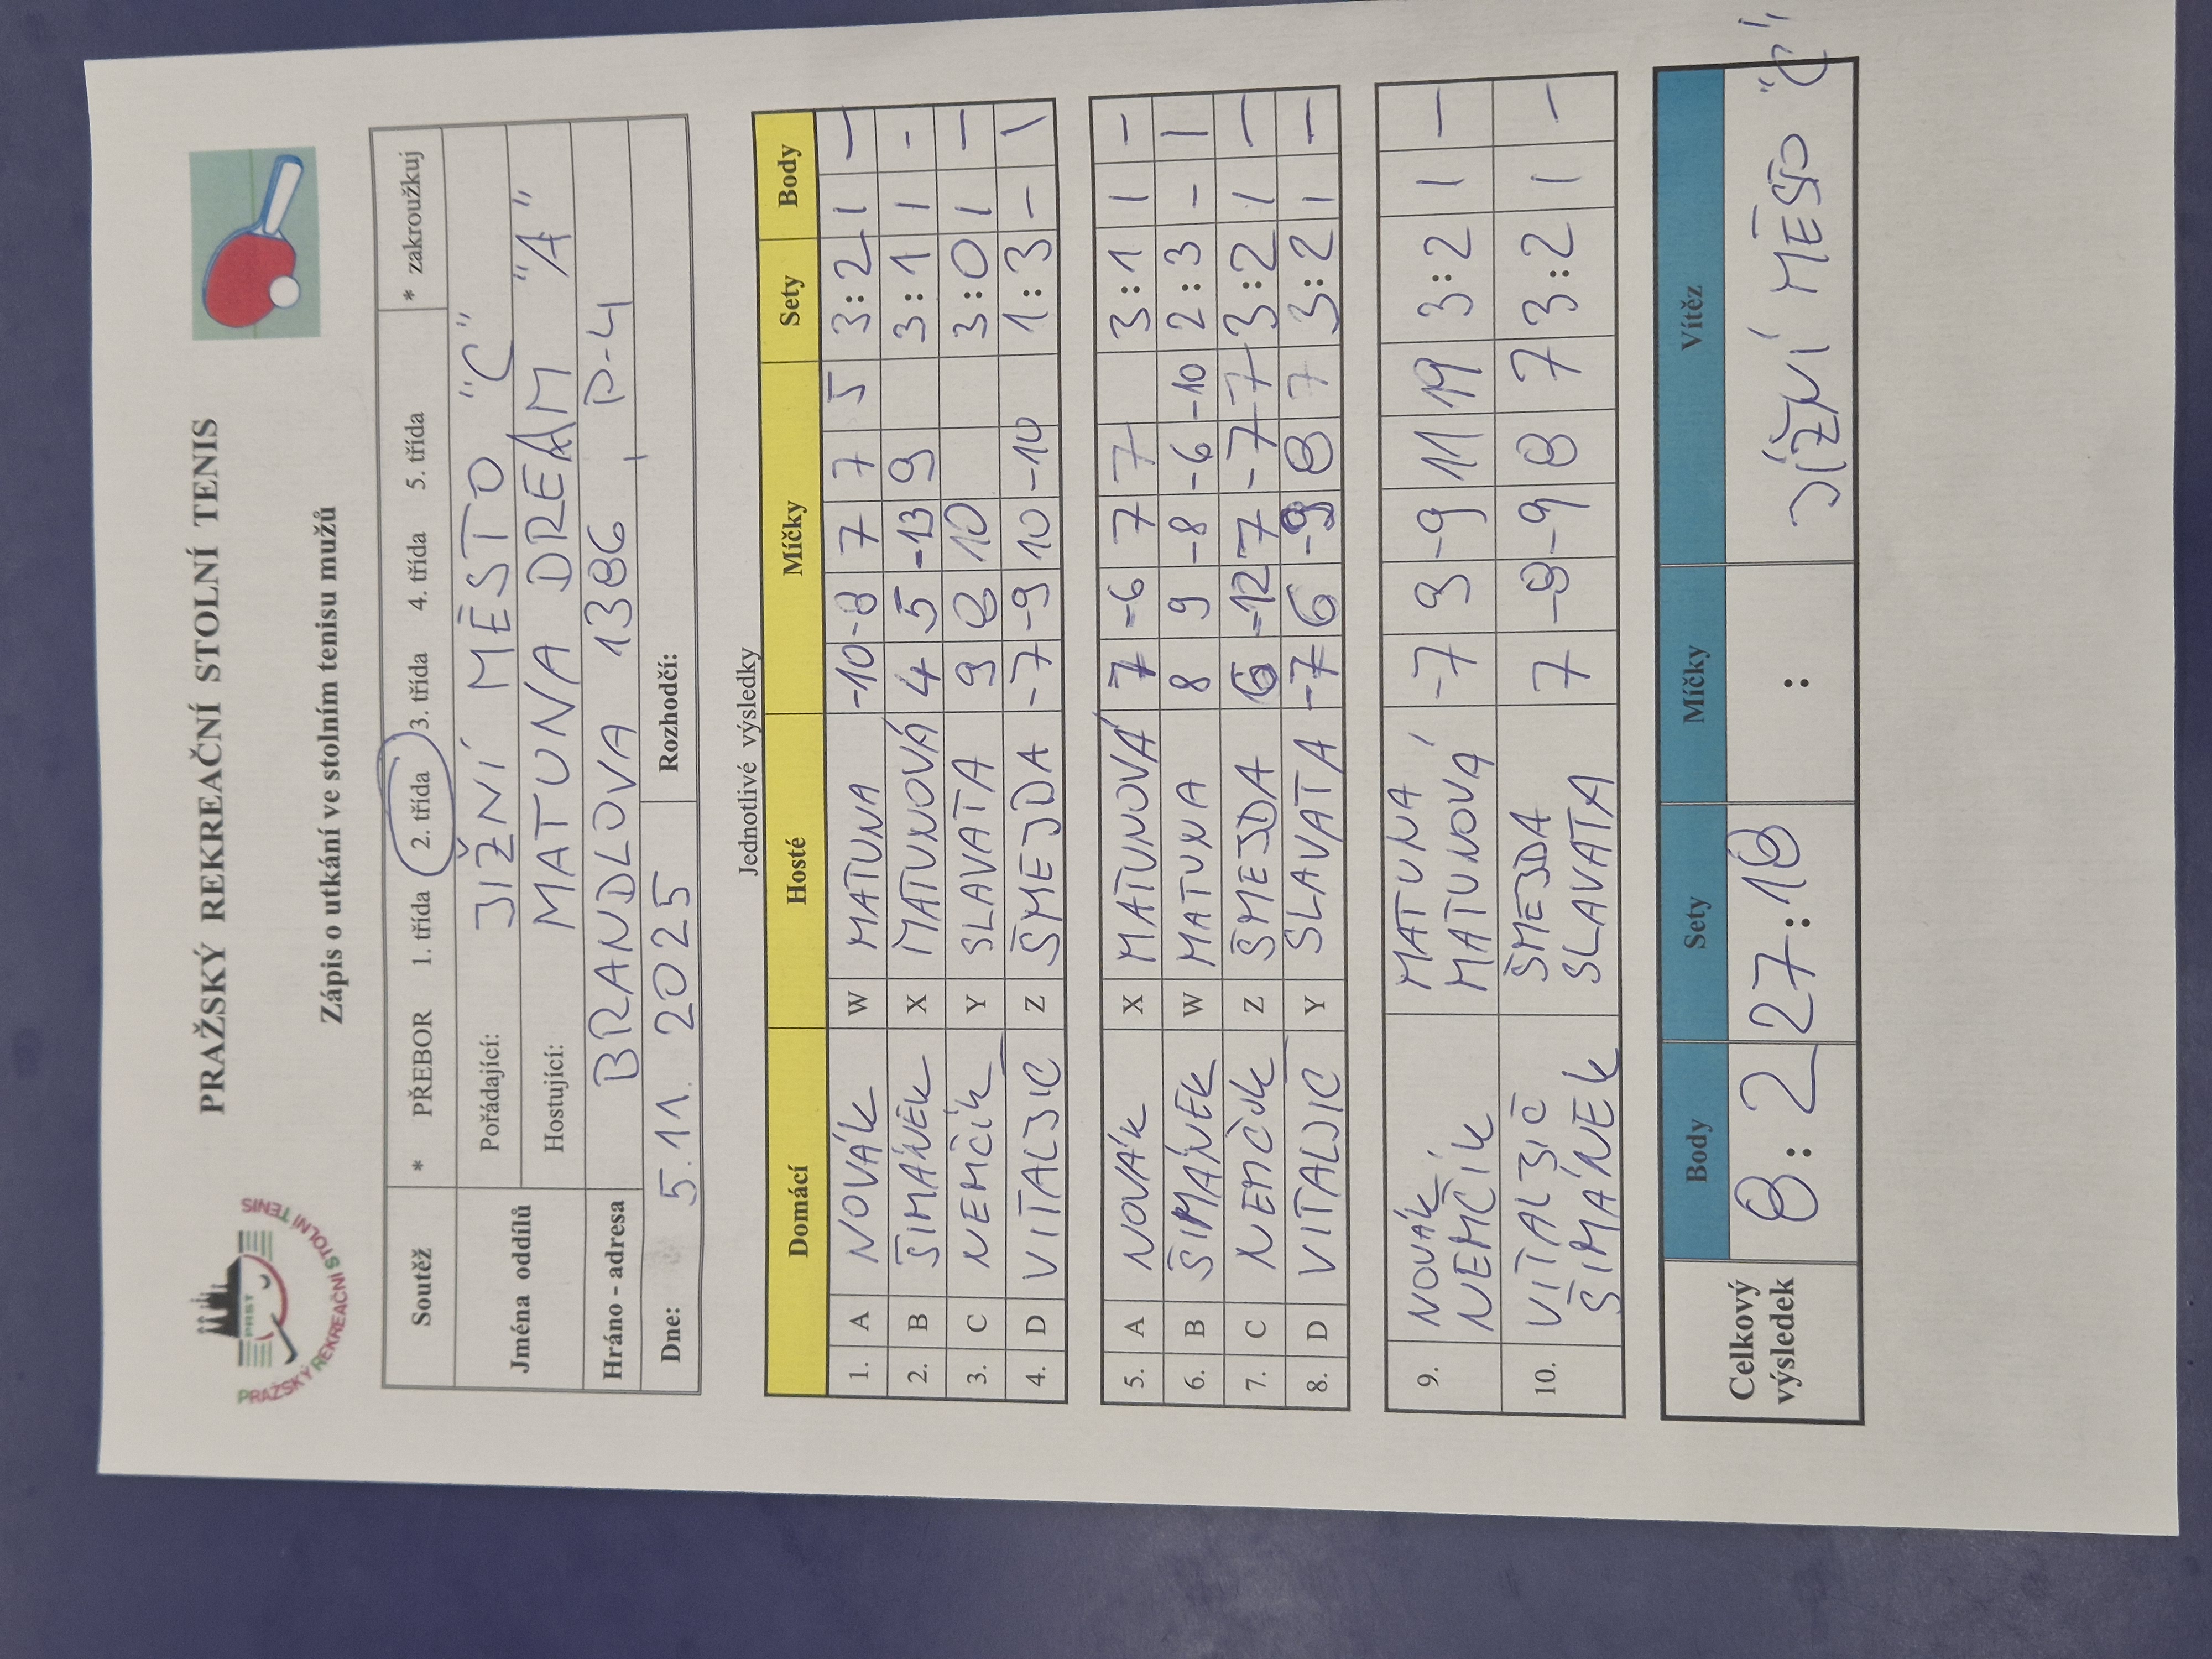 PRAŽSKÝ REKREAČNÍ STOLNÍ TENIS
PRST
PRAŽSKÝ REKREAČNÍ STOLNÍ TENIS
Zápis o utkání ve stolním tenisu mužů
Soutěž * PŘEBOR 1. třída 2. třída 3. třída 4. třída 5. třída * zakroužkuj
Jména oddílů Pořádající: JIŽNÍ MĚSTO "C"
Hostující: MATUNA DREAM "A"
Hráno - adresa BRANDLOVA 1386, P-4
Dne: 5.11. 2025 Rozhodčí:
Jednotlivé výsledky
Domácí Hosté Míčky Sety Body
1. A NOVÁK W MATUNA -10 -8 7 7 5 3:2 1 –
2. B ŠIMÁNEK X MATUNOVÁ 4 5 -13 9 3:1 1 -
3. C NEMČÍK Y SLAVATA 9 8 10 3:0 1 –
4. D VITALJIC Z ŠMEJDA -7 -9 10 -10 1:3 – 1
5. A NOVÁK X MATUNOVÁ 7 -6 7 7 3:1 1 –
6. B ŠIMÁNEK W MATUNA 8 9 -8 -6 -10 2:3 – 1
7. C NEMČÍK Z ŠMEJDA 6 -12 7 -7 7 3:2 1 –
8. D VITALJIC Y SLAVATA -7 6 -9 8 7 3:2 1 –
9. NOVÁK MATUNA -7 9 -9 11 19 3:2 1 –
NEMČÍK MATUNOVÁ
10. VITALJIČ ŠMEJDA 7 -8 -9 8 7 3:2 1 –
ŠIMÁNEK SLAVATA
Celkový výsledek Body Sety Míčky Vítěz
8:2 27:18 : JIŽNÍ MĚSTO "C"